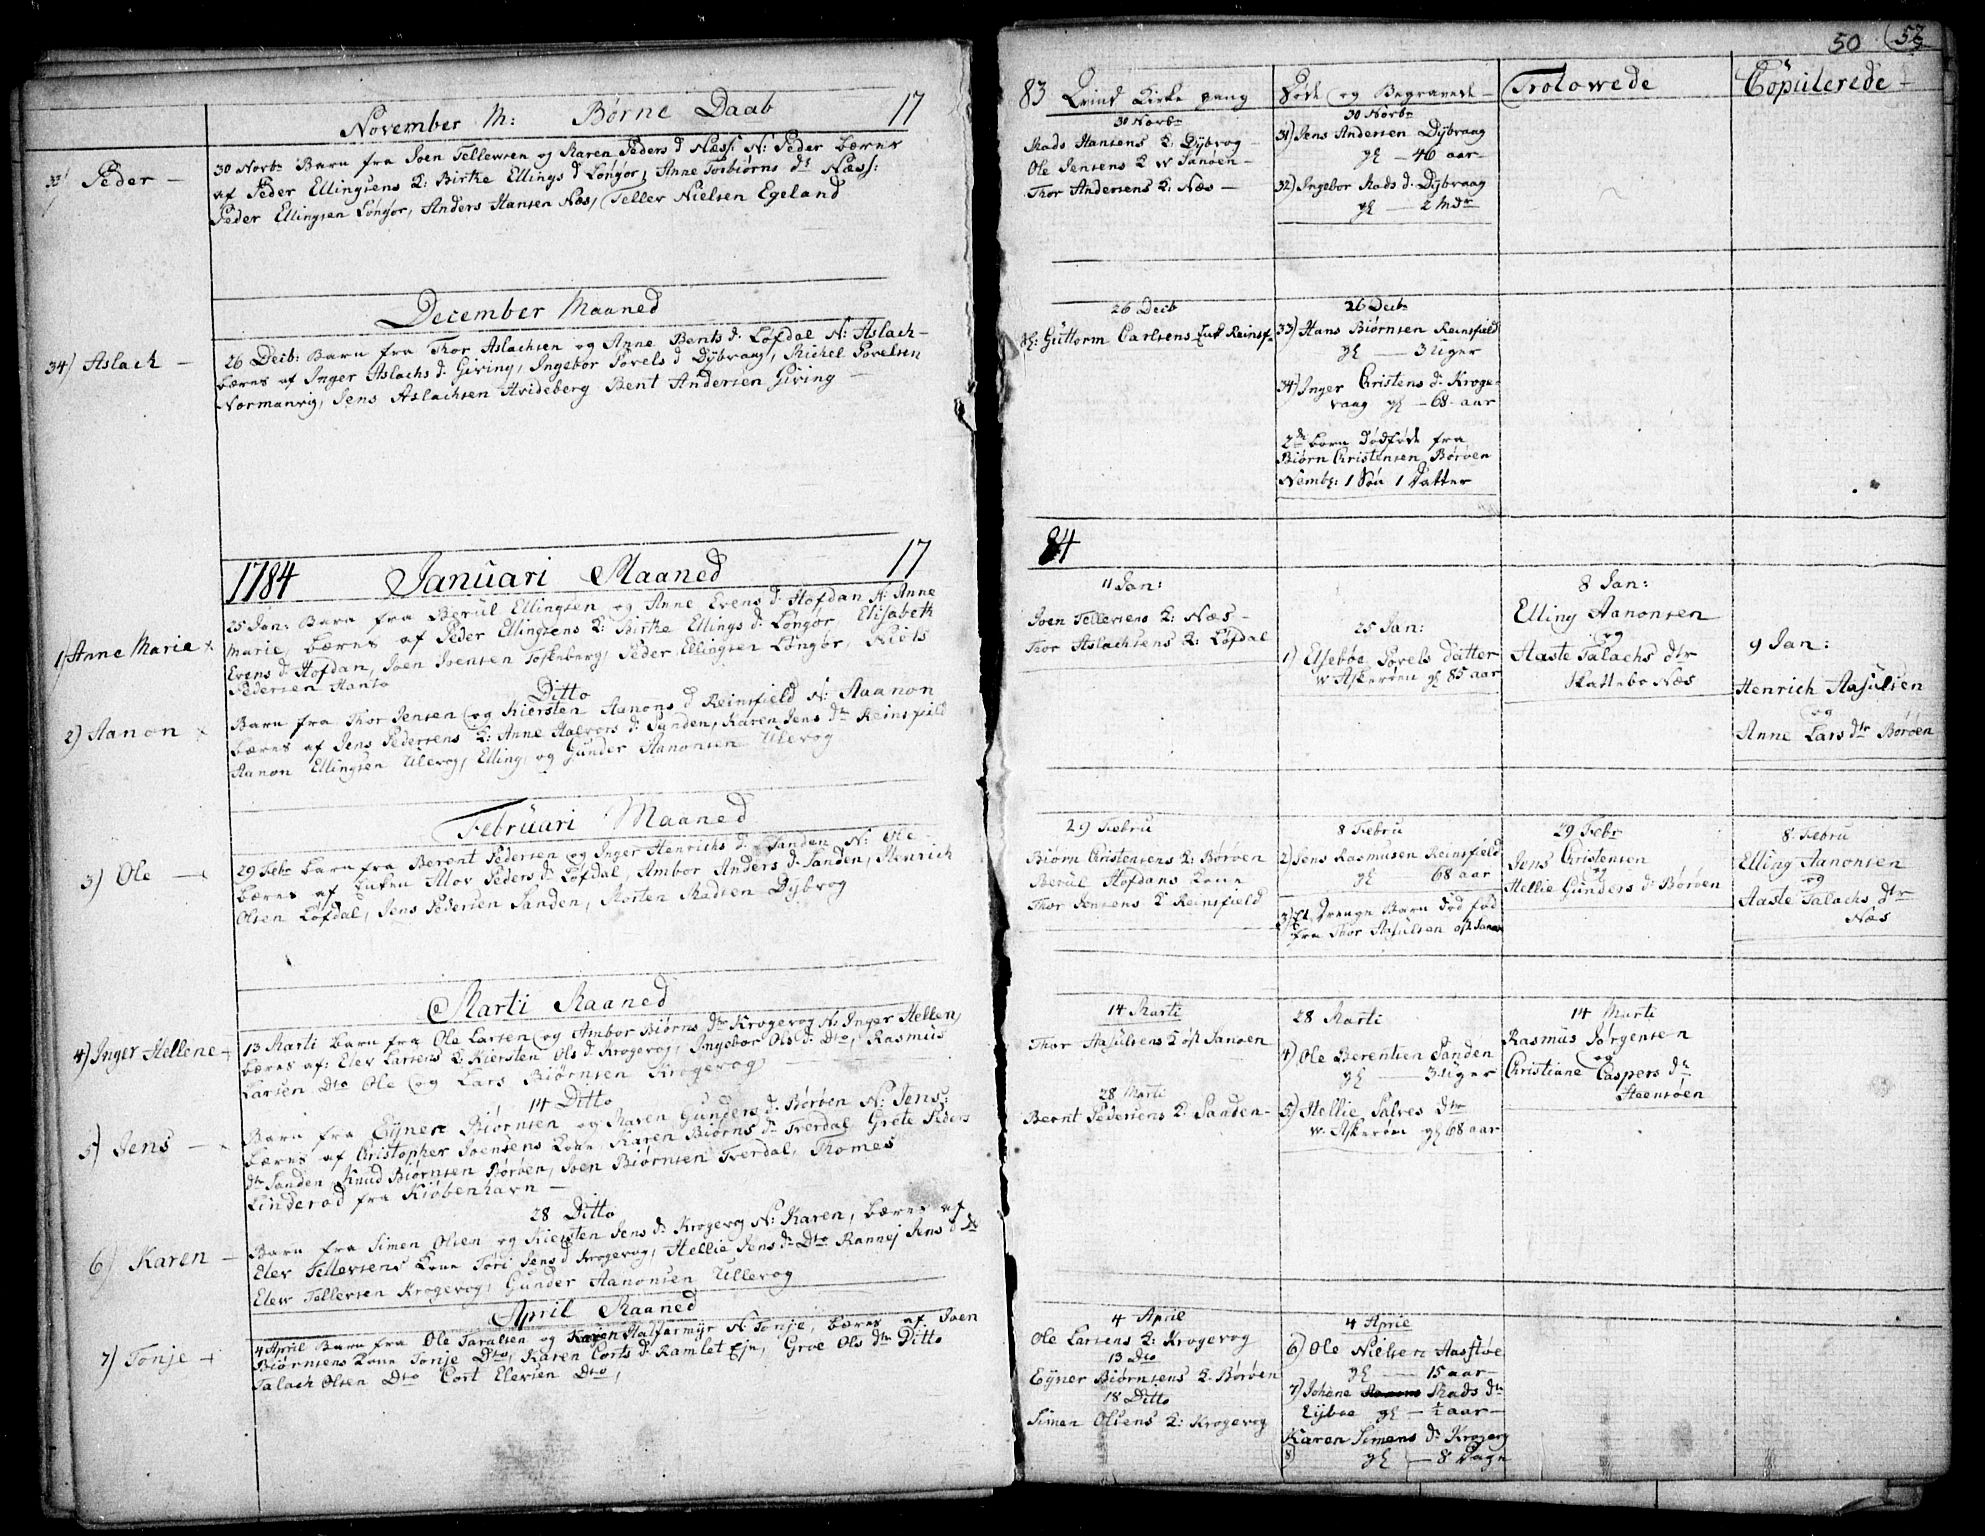 November M: Børne Daab 17
33) Peder —
30 Novbr Barn fra Joen Tellewsen og Karen Peders d Næss: N: Peder bæres
af Peder Ellingsens K: Birte Ellings d Løngør, Anne Torbiørns dr Næss:
Peder Ellingsen Løngør, Anders Hansen Næs, Tellev Nielsen Egeland
December Maaned
34) Aslach —
26 Decb: Barn fra Thor Aslachsen og Anne Bents d. Løfdal N: Aslach —
bæres af Inger Aslachs d. Giving, Ingebor Povels d Dybvaag, Michel Povelsen
Normanvig, Jens Aslachsen Hvideberg Bent Andersen Giving —
1784 Januari Maaned 17
1) Anne Marie
25 Jan: Barn fra Berül Ellingsen og Anne Evens d. Hofdan N: Anne
Marie, bæres af Peder Ellingsens K: Birte Ellings d. Løngør, Elisabeth
Evens d Hofdan, Joen Joensen Toskeberg, Peder Ellingsen Løngør,
Pedersen
Ditto
2) Aanon
Barn fra Thor Jensen og Kiersten Aanons d Reinsfield N: Aaanon
bæres af Jens Pedersens K: Anne Halvors d. Sanden, Karen Jens dr Reinsfield
Aanon Ellingsen Ulevog, Elling og Gunder Aanonsen Ulevog
Februari Maaned
3) Ole —
29 Febr Barn fra Berent Pedersen og Inger Henrichs d. Sanden N: Ole
bæres af Enken Alov Peders d. Løfdal, Ambor Anders d. Sanden, Henrich
Olsen Løfdal, Jens Pedersen Sanden, Morten Madsen Dybvog
Marti Maaned
4) Inger Hellene
13 Marti Barn fra Ole Larsen og Ambor Biørns dr Krogevog N: Inger Hellene,
bæres af: Elev Larsens K. Kiersten Ols d. Krogevog, Ingebor Ols d: Dto, Rasmus
Larsen Dto Ole og Lars Biørnsen Krogevog
14 Ditto
5) Jens —
Barn fra Eyner Biørnsen og Karen Gunders d. Børøen N: Jens:
bæres af Christopher Joensens Kone Karen Biørns dr Tverdal, Grete Peders
dtr Sanden, Knud Biørnsen Børøen, Joen Biørnsen Tverdal, Thomes
Linderod fra Kiøbenhavn —
28 Ditto
6) Karen —
Barn fra Simen Olsen og Kiersten Jens d. Krogevog N: Karen, bæres af
Elev Tellevsens Kone Tori Jens d Krogevog, Hellie Jens d. Dto Rannej Jens d Dto
Elew Tellevsen Krogevog, Gunder Aanonsen Ullevog
April Maaned
7) Tonje
4 April Barn fra Ole Taralsen og Karen Halfarmyr N: Tonje, bæres af Joen
Biørnsens Kone Tonje Dto, Karen Corts d. Ramlet Eje, Groe Ols dtr Ditto
Talach Olsen Dto Cort Elevsen Dto,
50 52
83 Qvind Kirke gang
30 Novbr
Mads Hansens K: Dybvog —
Ole Jensens K w Sanøen —
Thor Andersens K: Næs —
26 Decb
Guttorm Carlsens Enk Reinsf.
84
11 Jan:
Joen Tellevsens K: Næs —
Thor Aslachsens K: Løfdal
29 Febru
Biørn Christensens K: Børøen
Berül Hofdans Kone
Thor Jensens K Reinsfield
14 Marti
Thor Aasulsens K øst Sanøen
28 Marti
Bernt Pedersens K: Sanden —
4 April
Ole Larsens K: Krogevog
13 Dto
Eyner Biørnsens K. Børøen
18 Ditto
Simen Olsens K: Krogevog
Døde og Begravede
30 Novbr
31) Jens Andersen Dybvaag
gl — 46 aar —
32) Ingebor Mads d. Dybvaag
gl — 2 Mdr
26 Decbr
33) Hans Biørnsen Reinsfield
gl — 3 Uger
34) Inger Christens d. Kroge-
vaag gl — 68 aar
2de Børn dødføde fra
Biørn Christensen Børøen
Nembl: 1 Søn 1 Datter
25 Jan:
1) Elsebøe Povels datter
w Askerøen gl 85 aar
8 Febru
2) Jens Rasmusen Reinsfield
gl 68 aar
3) Et Drenge Barn død fød
fra Thor Aasulsen øst Sanøe
28 Marti
4) Ole Berentsen Sanden
gl — 3 Uger
5) Hellie Salves dtr
w. Askerøen gl 68 aar
4 April
6) Ole Nielsen
gl — 15 aar —
7) Johane Mads dtr
Eijboe gl — ½ aar —
Karen Simens d. Krogevog
8) gl — 8 Dage
Trolowede
8 Jan:
Elling Aanonsen
og
Aaste Talachs dtr
Skattebo Næs
29 Febr
Jens Christensen
og
Hellie Gunders d. Børøen
14 Marti
Rasmus Jørgensen
og
Christiane Caspers dr
Steensøen
Copulerede
9 Jan:
Henrich Aasulsen
og
Anne Lars dtr Børøen
8 Febru
Elling Aanonsen
og
Aaste Talachs dtr
Næs